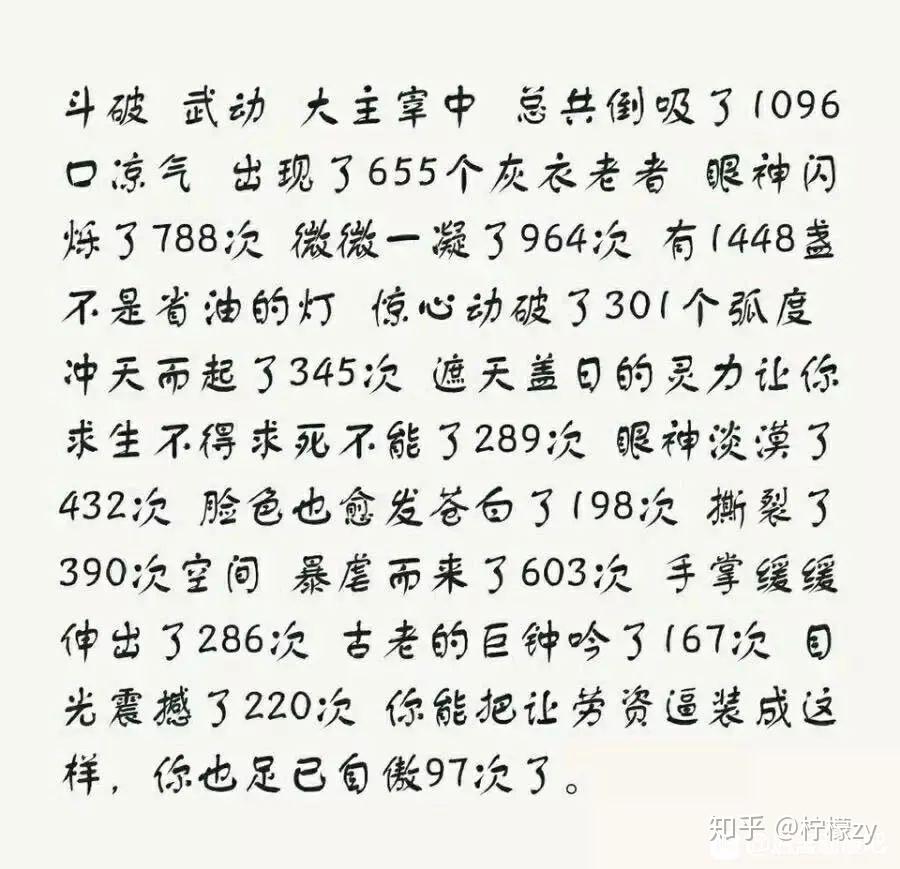 斗破 武动 大主宰中 总共倒吸了1096
口凉气 出现了655个灰衣老者 眼神闪
烁了788次 微微一凝了964次 有1448盏
不是省油的灯 惊心动破了301个弧度
冲天而起了345次 遮天盖日的灵力让你
求生不得求死不能了289次 眼神淡漠了
432次 脸色也愈发苍白了198次 撕裂了
390次空间 暴虐而来了603次 手掌缓缓
伸出了286次 古老的巨钟吟了167次 目
光震撼了220次 你能把让劳资逼装成这
样，你也足已自傲97次了。
知乎 @柠檬zy